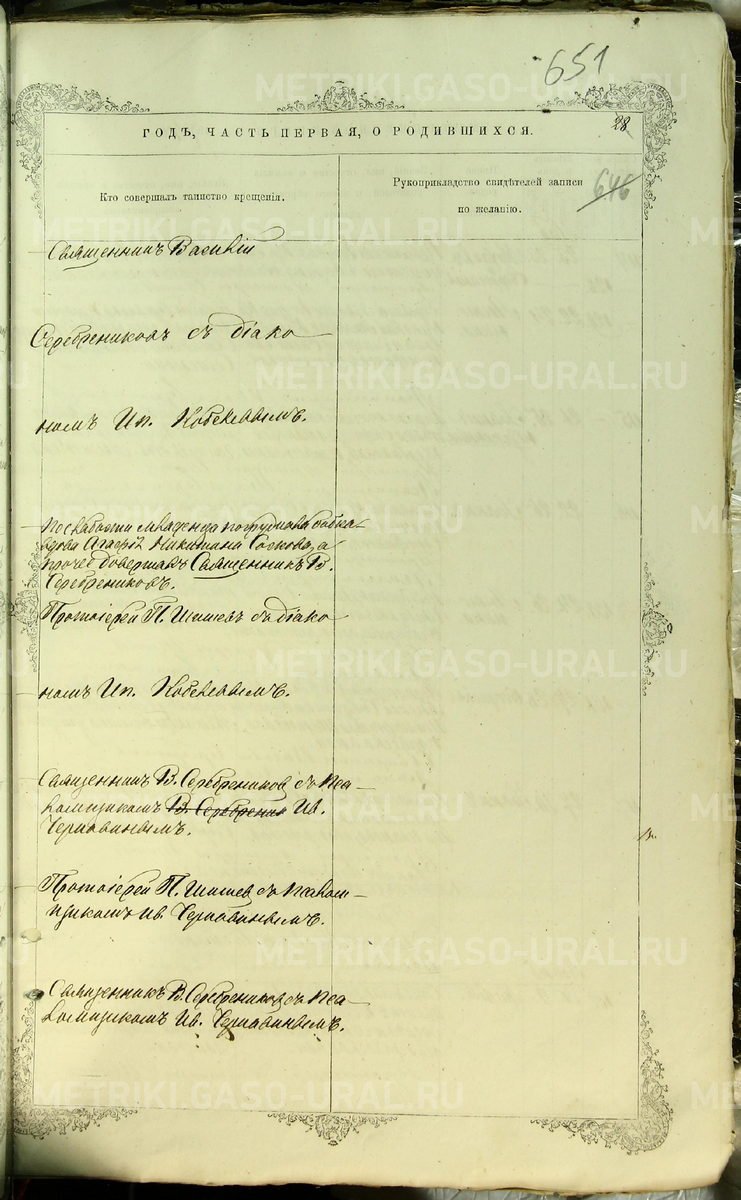 651
ГОДЪ, ЧАСТЬ ПЕРВАЯ, О РОДИВШИХСЯ.
28
Кто совершалъ таинство крещенія.
Рукоприкладство свидѣтелей записи
по желанію.
646
Священникъ Василій
Серебрениковъ съ діако
номъ Ип.
По слабости младенца погружала бабка
вдова Агафія Никитина а
прочее довершалъ Священникъ В.
Серебрениковъ.
Протоіерей П. Шишевъ съ діако
номъ Ип.
Священникъ В. Серебрениковъ съ Пса
ломщикомъ В. Серебрени Ив.
Чернавинымъ.
Протоіерей П. Шишевъ съ Псалом
щикомъ Ив. Чернавинымъ.
Священникъ В. Серебрениковъ съ Пса
ломщикомъ Ив. Чернавинымъ.
METRIKI.GASO-URAL.RU